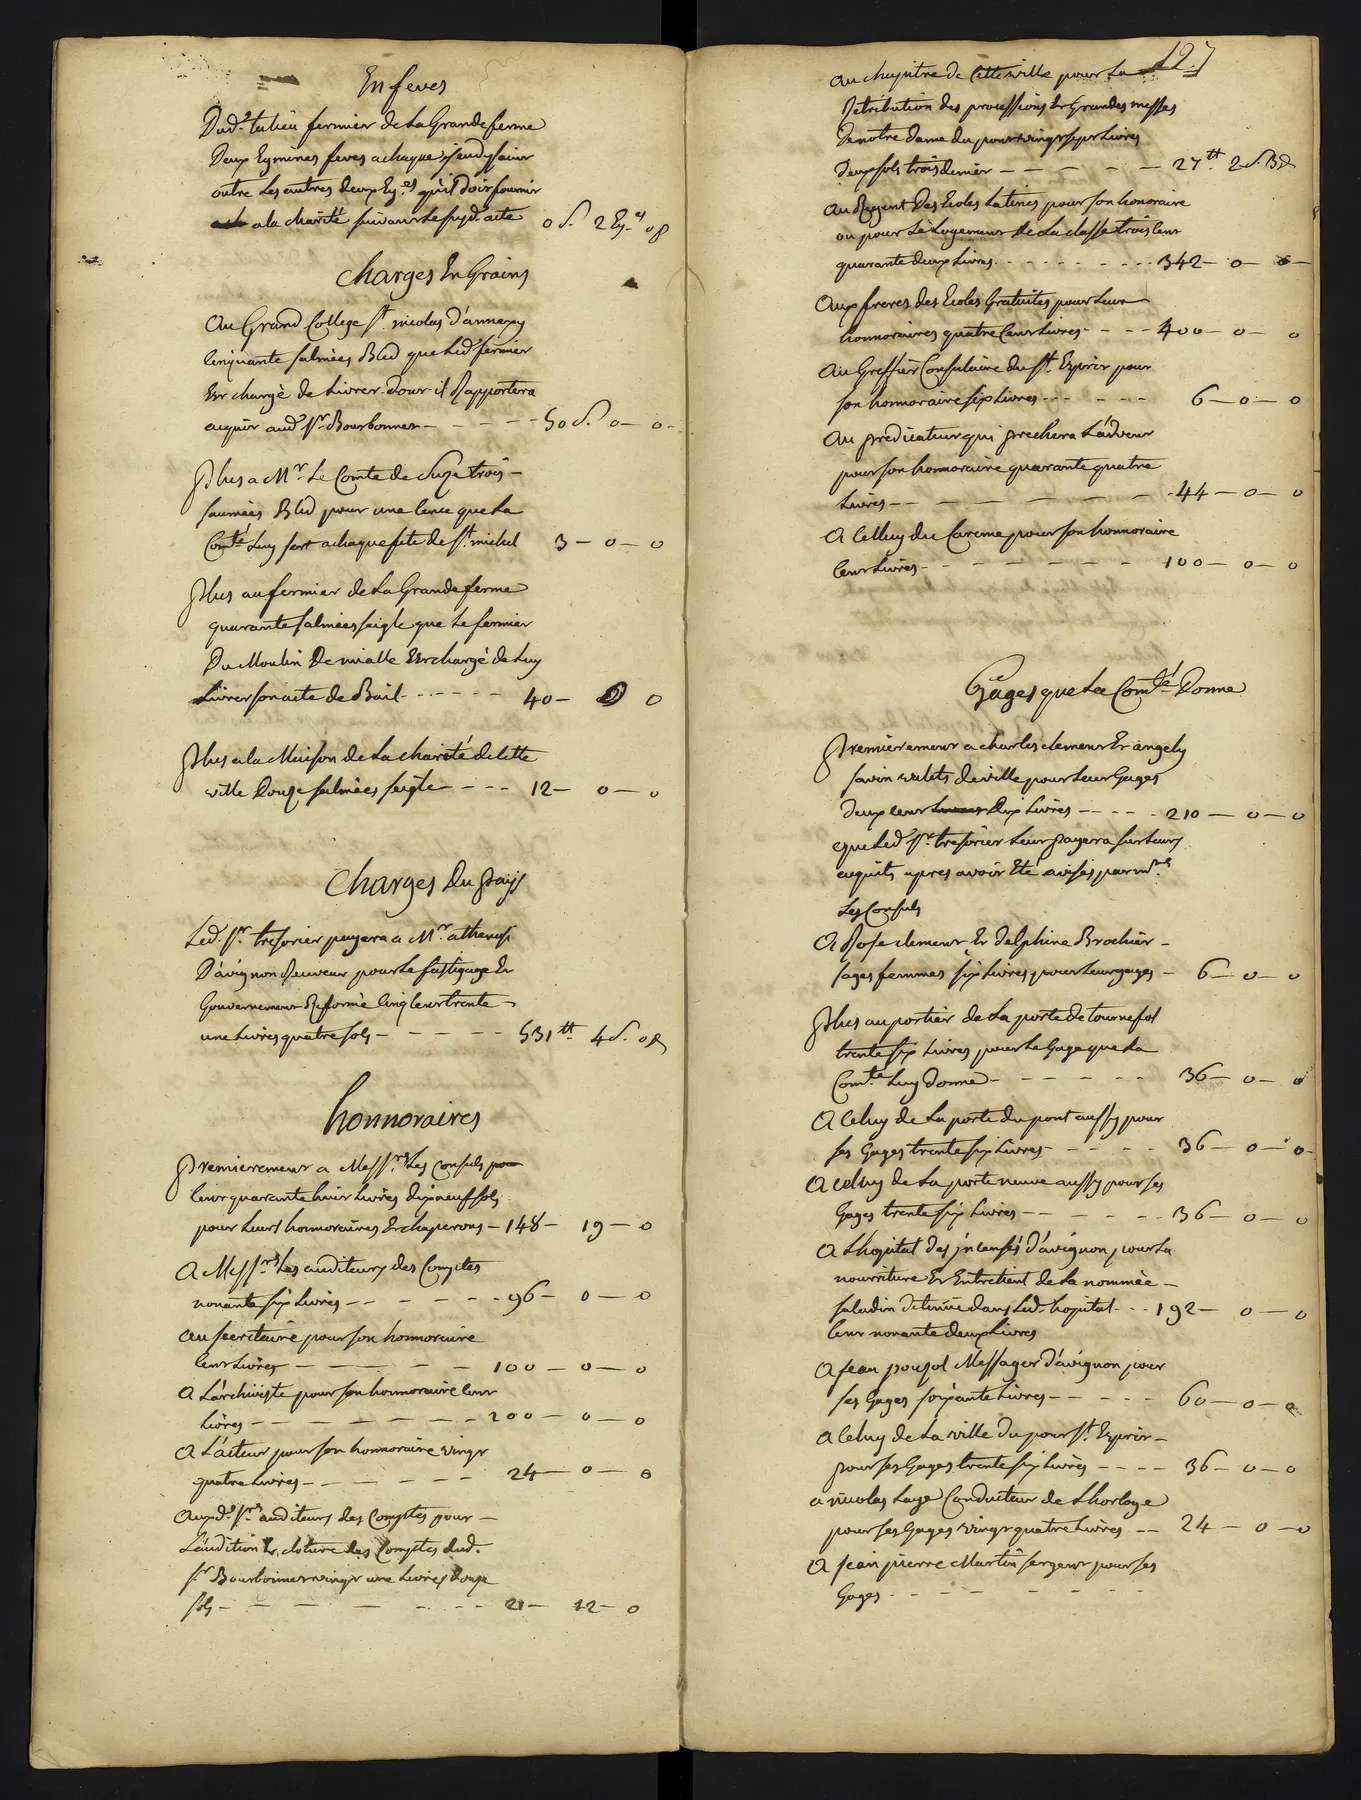 En feves
Dud.t tulieu fermier de La Grande ferme
Deux Eymines feves a chaque jeudy sainr
outre Les autres deux Ey.es qu'il doir fournir
a la charité suivanr Le susd. acte 0 S. 2 Ey.es 0 8
Charges En Grains
Au Grand College S.t nicolas d'annecy
Cinquante salmées Bled que Led fermier
Er chargé de Livrer dour il Rapportera
acquir aud.t S.r Bourbonner - - - - - 50 S. 0 - 0 -
Plus a M.r Le Comte de Suze trois -
saumées Bled pour une Cence que La
Com.té Luy fair a chaque fete de S.t michel 3 - 0 - 0
Plus au fermier de La Grande ferme
quarante salmées seigle que Le fermier
Du Moulin De mialle Er chargé de Luy
Livrer son acte de Bail - - - - - - 40 - 0 0
Plus a la Maison de La charité de Cette
ville Douze salmées seigle - - - - 12 - 0 - 0
Charges Du pays
Led. S.r tresorier payera a M.r athenosi
D'avignon Receveur pour Le
Gouvernemenr Reformé Cinq Cenr trente -
une Livres quatre sols - - - - - - 531 tt 4 S. 0 8
honnoraires
Premieremenr a Mess.rs Les Consuls pour
Cenr quarante huir Livres dix neuf sols
pour Leurs honnoraires Er chaperons - 148 - 19 - 0
A Mess.rs Les auditeurs des Comptes
nonante six Livres - - - - - - - 96 - 0 - 0
au secretaire pour son honnoraire
Cenr Livres - - - - - - 100 - 0 - 0
A L'archiviste pour son honnoraire Cenr
Livres - - - - - - - - 200 - 0 - 0
A L'acteur pour son honnoraire vingr
quatre Livres - - - - - - 24 - 0 - 0
Auxd.s S.rs auditeurs des Comptes pour -
L'audition Er cloture des Comptes dud.
S.r Bourbonner vingr une Livres douze
sols - - - - - - - - 21 - 12 - 0
127
au chapitre de Cette ville pour La
Distribution des processions Er Grandes messes
De notre dame du pour vingr sepr Livres
Deux sols trois denier - - - - - - 27 tt. 2 S. 3 d
Au Regent Des Ecoles Latines pour son honoraire
ou pour Le Logemenr de La classe trois Cenr
quarante deux Livres - - - - - - - 342 - 0 - 0 -
Aux freres des Ecoles Gratuites pour Leur
honnoraires quatre Cenr Livres - - - - 400 - 0 - 0
Au Greffier Consulaire du S.t Esprir pour
son honnoraire six Livres - - - - - - 6 - 0 - 0
Au predicateur qui prechera L'advenr
pour son honnoraire quarante quatre
Livres - - - - - - - - 44 - 0 - 0
A Celluy du Careme pour son honnoraire
Cenr Livres - - - - - - - 100 - 0 - 0
Gages que La Com.té Donne
Premieremenr a charles clemenr Er angely
savin valets de ville pour Leur Gages
Deux Cenr Dix Livres - - - - 210 - 0 - 0
que Led S.r tresorier Leur payera sur Leurs
acquits apres avoir Eté avisés par m.rs
Les Consuls
A Rose clemenr Er Delphine Brochier -
sages femmes six Livres pour Leur gages - 6 - 0 - 0
Plus au portier de La porte de tournefol
trente six Livres pour Le Gage que La
Com.té Luy Donne - - - - - - 36 - 0 - 0
A Celuy de La porte du pont aussy pour
ses Gages trente six Livres - - - - - 36 - 0 - 0 -
A Celuy de La porte neuve aussy pour ses
Gages trente six Livres - - - - - - 36 - 0 - 0
A L'hopital des jnsensés d'avignon pour La
nourriture Er Entretient de La nommée -
saladin detenüe dans Led. hopital - - - 192 - 0 - 0
Cenr nonante deux Livres
A jean poujol Messager d'avignon pour
ses Gages soixante Livres - - - - - 60 - 0 - 0
A Celuy de La ville du pour S.t Esprir -
pour ses Gages trente six Livres - - - - 36 - 0 - 0
a nicolas Laye Conducteur de L'horloge
pour ses Gages vingr quatre Livres - - 24 - 0 - 0
A jean pierre Martin sergenr pour ses
Gages - - - - - - -